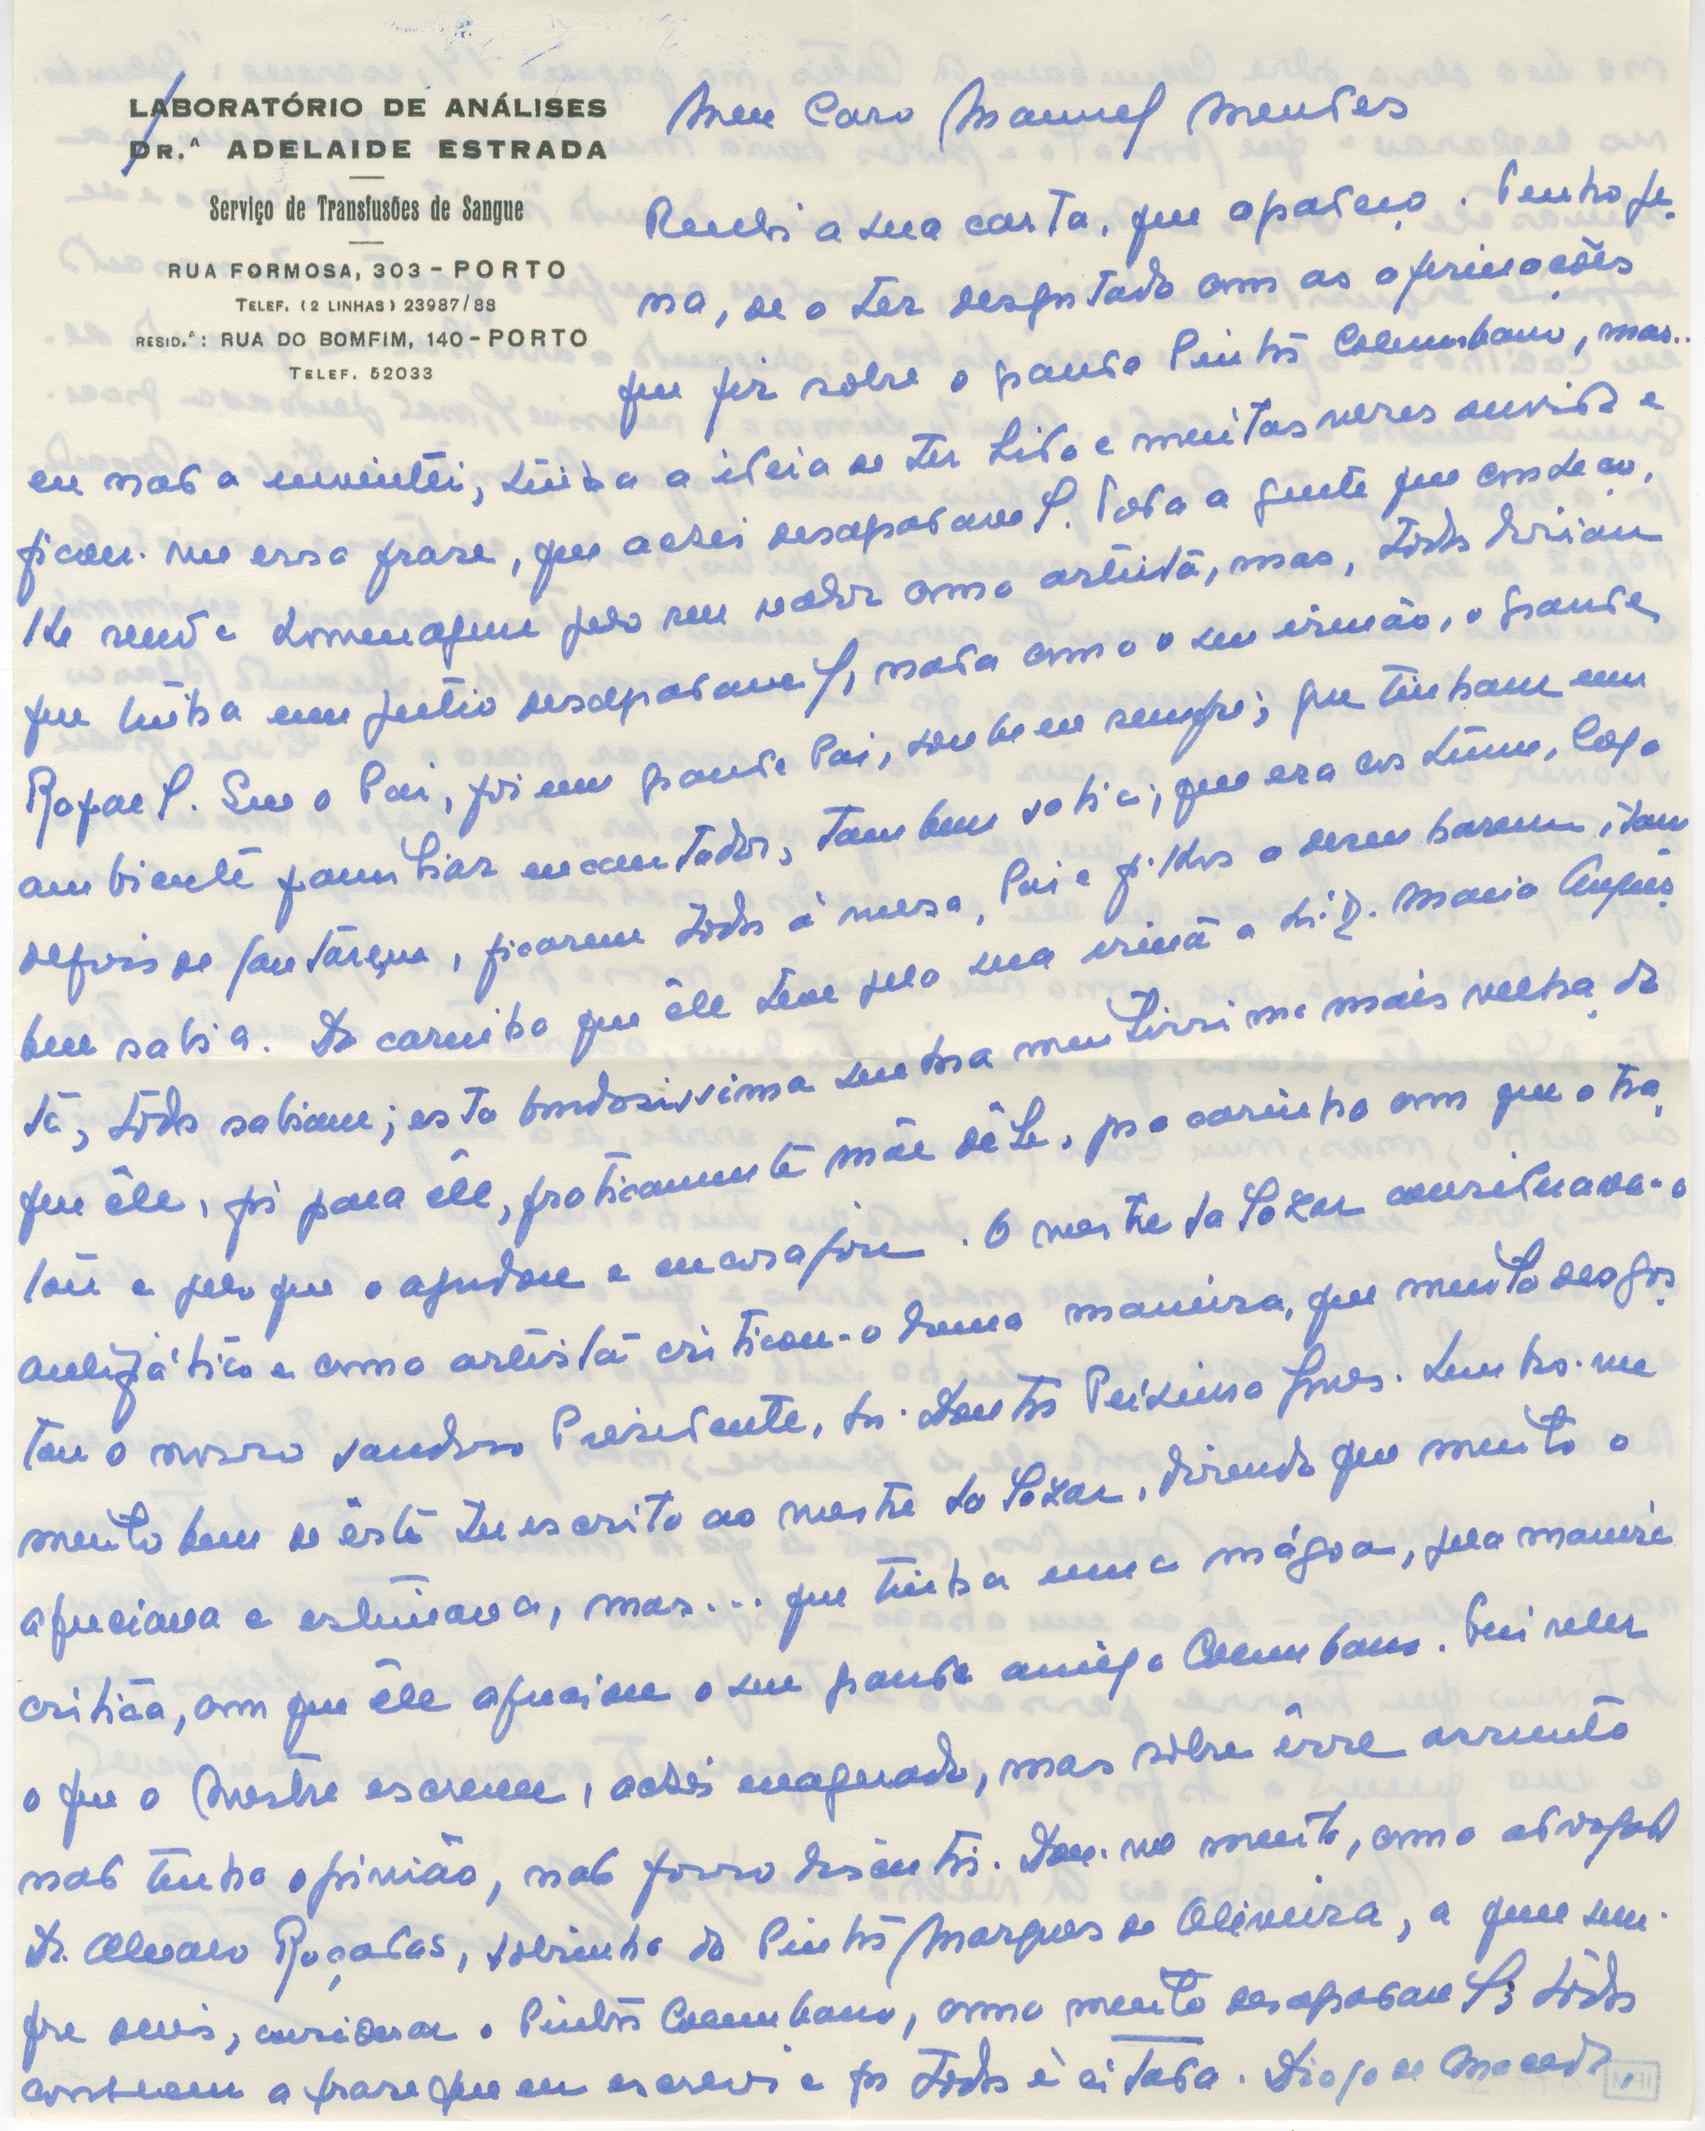 LABORATÓRIO DE ANÁLISES
DR.ª ADELAIDE ESTRADA
Serviço de Transfusões de Sangue
RUA FORMOSA, 303 - PORTO
TELEF. (2 LINHAS) 23987/88
RESID.ª: RUA DO BOMFIM, 140 - PORTO
TELEF. 52033
Meu Caro Manuel Mendes
Recebi a sua carta, que agradeço. Tenho pe-
na, de o ter desgostado com as afirmações
que fiz sobre o grande Pintôr Columbano, mas..
eu nada inventei, tinha a ideia de ter lido e muitas vezes ouvido e
ficou-me essa frase, que achei desagradavel. Toda a gente que conheço,
lhe rende homenagem pelo seu valor como artista, mas, todos diziam
que tinha um feitio desagradavel, nada como o seu irmão, o grande
Rafael. Que o Pai, foi um grande Pai, soube eu sempre; que tinham um
ambiente familiar encantador, tambem sabia; que era costume, logo
depois de jantarem, ficarem todos à mesa, Pai e filhos a desenharem, tam-
bem sabia. Do carinho que êle teve pela sua irmã a Sr.ª D. Maria Augus-
ta, todos sabiam; esta bondosissima senhora muitissimo mais velha do
que êle, foi para êle, praticamente mãe dêle, p.lo carinho com que o tra-
tou e pelo que o ajudou e encorajou. O mestre Salazar considerava-o
antipático e como artista criticou-o duma maneira, que muito desgos-
tou o nosso saudoso Presidente, Sr. Doutor Teixeira Gomes. Lembro-me
muito bem de êste ter escrito ao mestre Salazar, dizendo que muito o
apreciava e estimava, mas... que tinha uma mágoa, pela maneira
critica, com que êle apreciou o seu grande amigo Columbano. Fui reler
o que o Mestre escreveu, achei engraçado, mas sobre êsse assunto
não tenho opinião, não posso discutir. Dou-me muito, com o advogado
Dr. Alvaro Roçadas, sobrinho do Pintôr Marques de Oliveira, a quem sem-
pre ouvi, considerar o Pintôr Columbano, como muito desagradavel; todos
conhecem a frase que eu escrevi e por todos é citada. Diogo de Macedo,